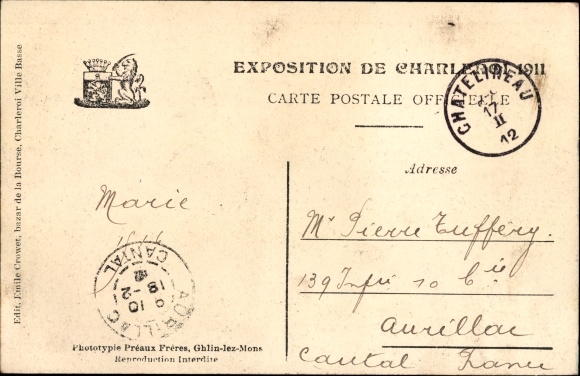 EXPOSITION DE CHARLEROI 1911
CARTE POSTALE OFFICIELLE
CHATELINEAU
17
II
12
Adresse
Marie
Mr Pierre Tufféry
139 Infie 10 Cie
Aurillac
Cantal France
AURILLAC
CANTAL
9 10
18 - 2
12
Phototypie Préaux Frères, Ghlin-lez-Mons
Reproduction Interdite
Edit. Emile Crowet, bazar de la Bourse, Charleroi Ville Basse